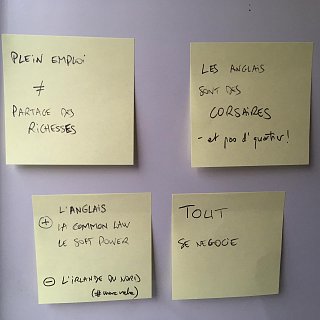 PLEIN EMPLOI
≠
PARTAGE DES
RICHESSES
LES ANGLAIS
SONT DES
CORSAIRES
- et pas d'quartier!
L'ANGLAIS
⊕ LA COMMON LAW
LE SOFT POWER
⊖ L'IRLANDE DU NORD
TOUT
SE NEGOCIE